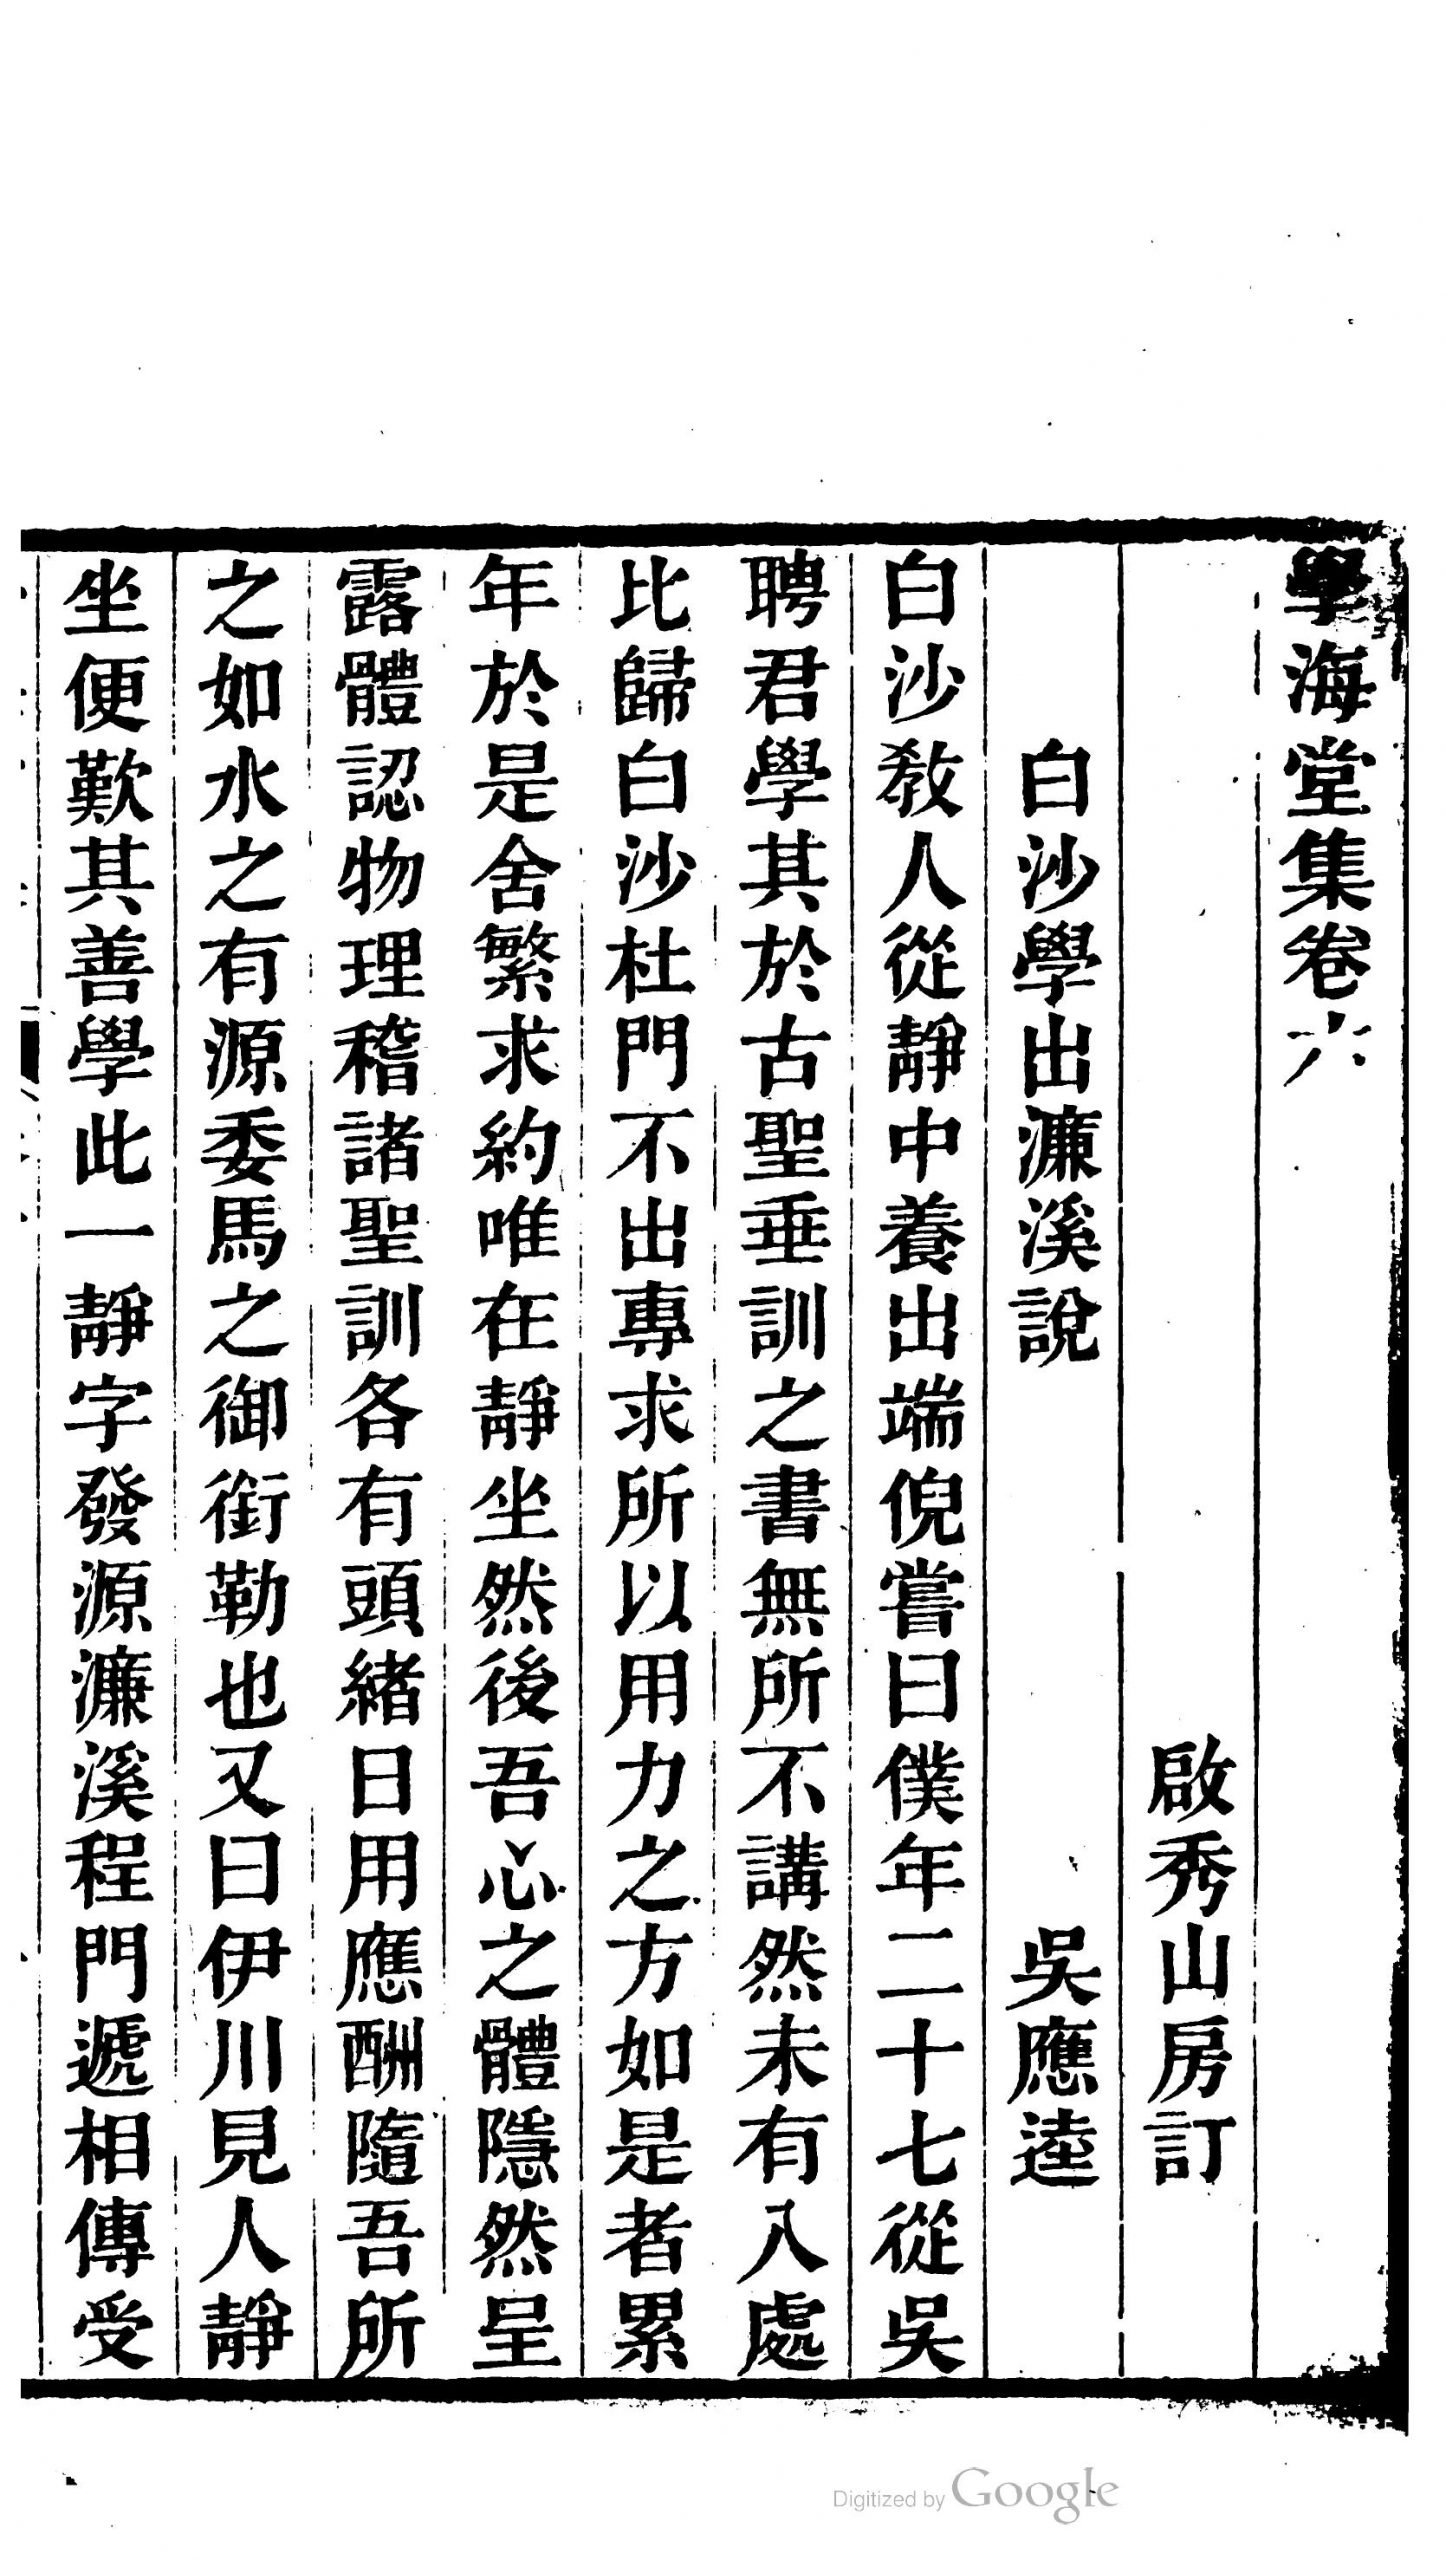 學海堂集卷六
啟秀山房訂
白沙學出濂溪說 吳應逵
白沙敎人從靜中養出端倪嘗曰僕年二十七從吳
聘君學其於古聖垂訓之書無所不講然未有入處
比歸白沙杜門不出專求所以用力之方如是者累
年於是舍繁求約唯在靜坐然後吾心之體隱然呈
露體認物理稽諸聖訓各有頭緒日用應酬隨吾所
之如水之有源委馬之御銜勒也又曰伊川見人靜
坐便歎其善學此一靜字發源濂溪程門遞相傳受
Digitized by Google